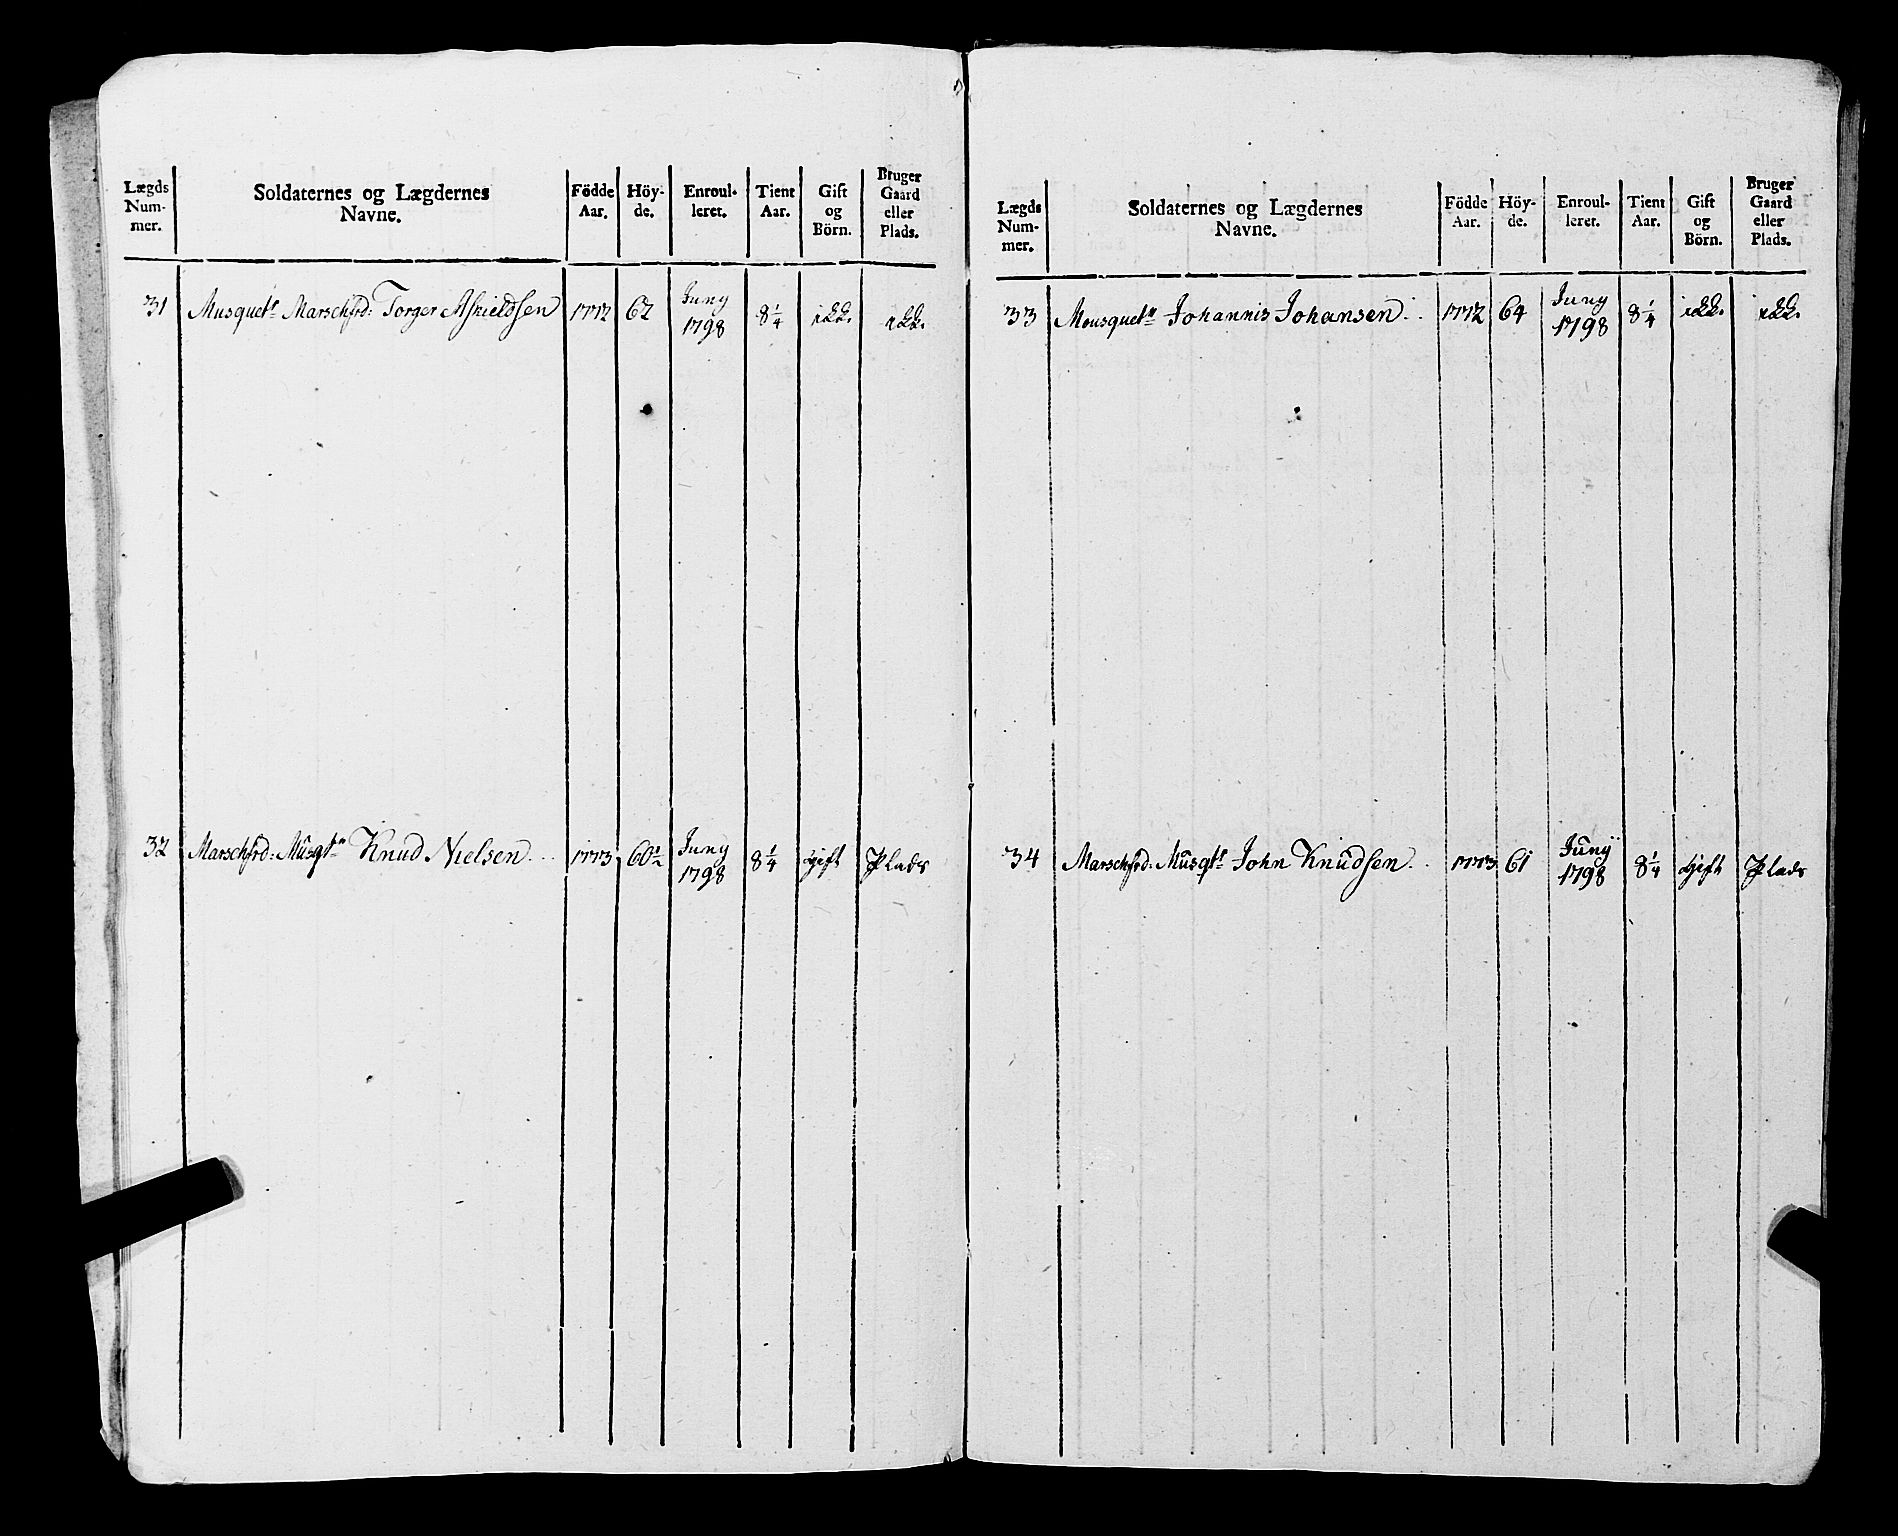 Lægds Num- mer.
Soldaternes og Lægdernes Navne.
Födde Aar.
Höy- de.
Enroul- leret.
Tient Aar.
Gift og Börn.
Bruger Gaard eller Plads.
31 Musquetr Marschfrd: Torger Askieldsen 1772 62 Juny 1798 8 1/4 ikke ikke
32 Marschfrd: Musqtr Knud Nielsen 1773 60 1/2 Juny 1798 8 1/4 gift Plads
Lægds Num- mer.
Soldaternes og Lægdernes Navne.
Födde Aar.
Höy- de.
Enroul- leret.
Tient Aar.
Gift og Börn.
Bruger Gaard eller Plads.
33 Mousquetr Johannis Johansen 1772 64 Juny 1798 8 1/4 ikke ikke
34 Marschfrd: Musqtr John Knudsen 1773 61 Juny 1798 8 1/4 gift Plads